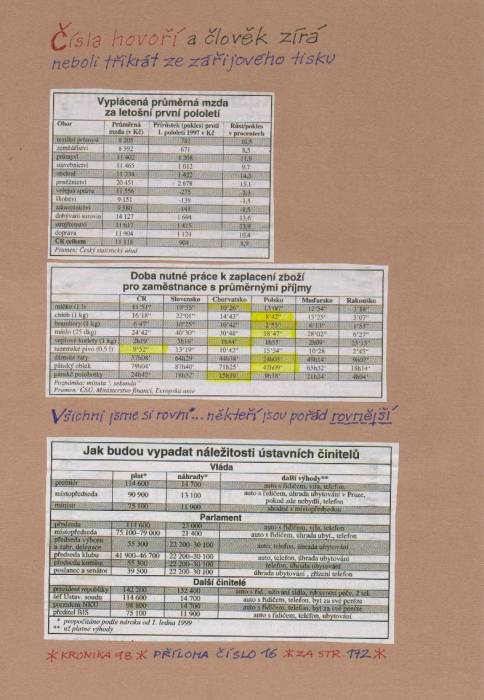 Čísla hovoří a člověk zírá
neboli třikrát ze zářijového tisku
Vyplácená průměrná mzda
za letošní první pololetí
Obor Průměrná mzda (v Kč) Přírůstek (pokles) proti 1. pololetí 1997 v Kč Růst/pokles v procentech
textilní průmysl 8 205 10,5
zemědělství 8 592 671 8,5
průmysl 11 402 1 208 11,9
stavebnictví 11 465 1 012 9,7
obchod 1 422
peněžnictví 20 451 2 678 15,1
veřejná správa 11 556 -275
školství 9 151 -139 -1,5
zdravotnictví 9 580
dobývání surovin 14 127 1 694 13,6
strojírenství 11 617 1 415 13,9
doprava 11 904 1 124 10,4
ČR celkem 11 118 908 8,9
Pramen: Český statistický úřad
Doba nutné práce k zaplacení zboží
pro zaměstnance s průměrnými příjmy
ČR Slovensko Chorvatsko Polsko Maďarsko Rakousko
mléko (1 l) 10'26" 12'54"
chléb (1 kg) 16'18" 22'01" 14'42" 8'42" 15'25" 3'07"
brambory (1 kg) 6'47" 10'25" 2'55" 6'13"
máslo (25 dkg) 24'42" 40'30" 30'48" 18'47" 28'02" 6'23"
vepřové kotlety (1 kg) 2h19' 1h44' 1h55' 2h09'
tuzemské pivo (0,5 l) 9'52" 13'19" 10'42" 15'54" 10'28 2'45"
dámské šaty 37h08' 64h29 49h14'
pánský oblek 79h04' 87h40' 71h25' 65h32' 18h14'
pánské polobotky 24h42' 15h39' 9h38' 21h34' 4h04'
Poznámka: minuta ', sekunda "
Pramen: ČSÚ, Ministerstvo financí, Evropská unie
Všichni jsme si rovni ... někteří jsou pořád rovnější
Jak budou vypadat náležitosti ústavních činitelů
Vláda
plat* náhrady* další výhody**
premiér 114 600 14 700 auto s řidičem, vila, telefon
místopředseda 90 900 13 100 auto s řidičem, úhrada ubytování v Praze,
pokud zde nebydlí, telefon
ministr 75 100 11 900 shodné s místopředsedou
Parlament
předseda 114 600 23 000 auto s řidičem, vila, telefon
místopředseda 75 100–79 000 21 400 auto s řidičem, úhrada ubyt., telefon
předseda výboru
a zahr. delegace 55 300 22 200–30 100 auto, telefon, úhrada ubytování
předseda klubu 41 900–46 700 22 200–30 100 auto, telefon, úhrada ubytování
předseda komise 55 300 22 200–30 100 telefon, úhrada ubytování
poslanec a senátor 39 500 22 200–30 100 úhrada ubytování, zřízení telefon
Další činitelé
prezident republiky 142 200 132 400 auto s řid., užívání sídla, zdravotní péče, 2 tel.
šéf Ústav. soudu 114 600 14 700 auto s řidičem, telefon, byt za své peníze
prezident NKÚ 98 800 14 700 auto s řidičem, telefon, byt za své peníze
ředitel BIS 75 100 11 900 auto s řidičem, telefon, úhrada ubytování
* propočítáno podle nároku od 1. ledna 1999
** už platné výhody
* KRONIKA 98 * PŘÍLOHA ČÍSLO 16 * ZA STR. 172 *